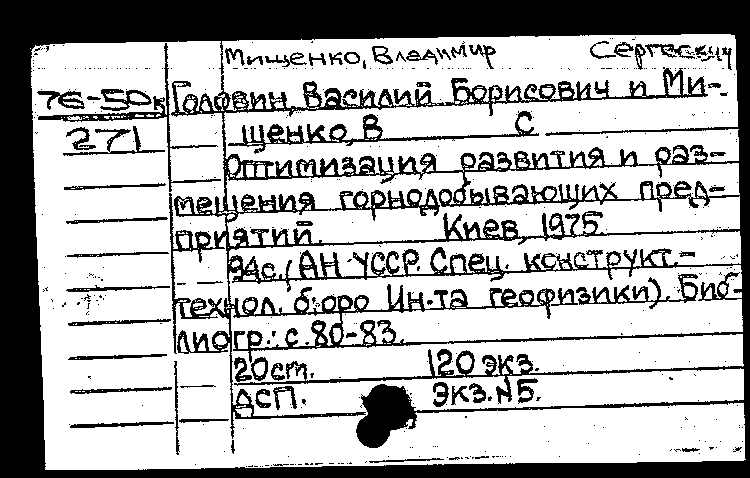 Мищенко, Владимир Сергеевич
76-50к Головин, Василий Борисович и Ми-
271 щенко, В С
Оптимизация развития и раз-
мещения горнодобывающих пред-
приятий. Киев, 1975.
94с. (АН УССР. Спец. конструкт.-
технол. бюро Ин-та геофизики). Биб-
лиогр.: с. 80-83.
20 ст. 120 экз.
ДСП. Экз. №5.